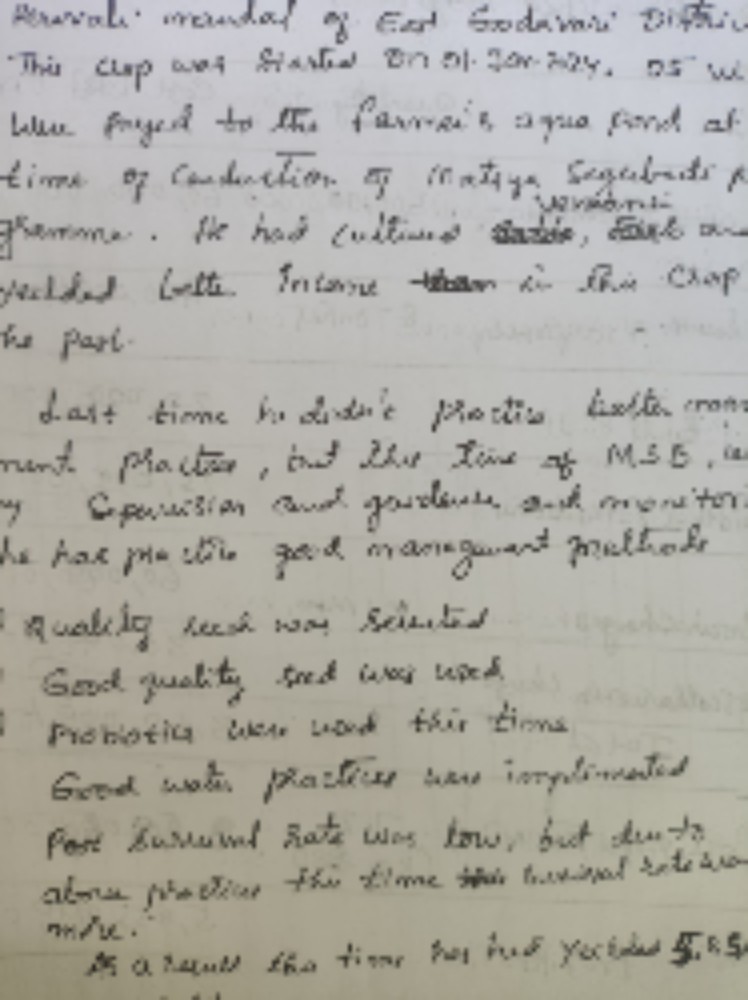 mandal of East Godavari Distri
This crop was started on 01-Jan-2024. 05 vi
were payed to the farmer's aqua pond at
time of Conduction of Matsya Sagubadi p
gramme. He had cultured vannamei, and
yeilded better Income in this Crop
he past.
Last time he didn't practice better mana
ment practice, but this time of MSB,
y Supervision and and monitori
he has practice good management methods
Quality seed was selected
Good quality seed was used
Probiotics were used this time
Good water practices were implimented
Past Survival rate was low, but due to
above practices this time survival rate was
more.
As a result this time has had yeilded